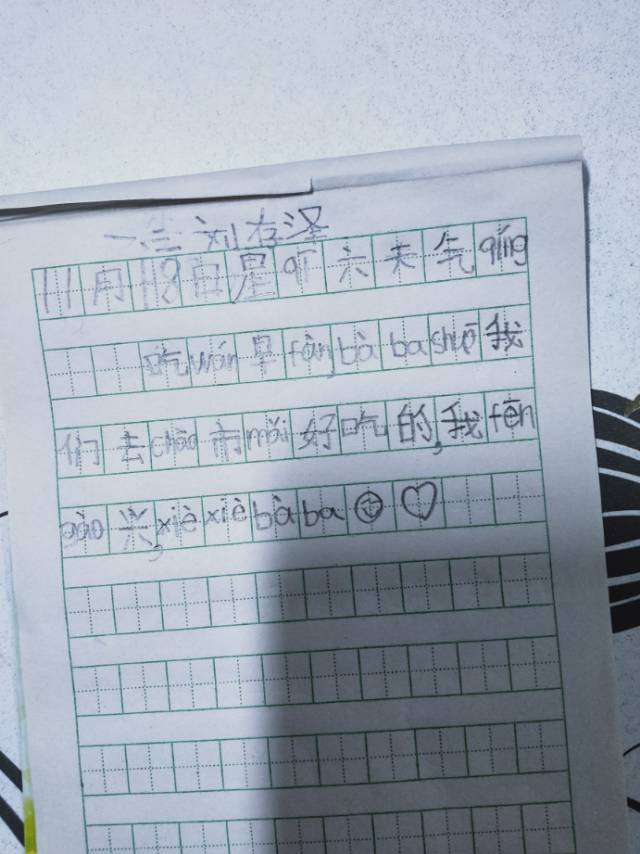 一三 刘存泽
11月18日星qī六天气qíng
吃wán早fàn,bàbashuō我
们去chāo市mǎi好吃的,我fēn
gāo兴,xièxièbàba☺♡